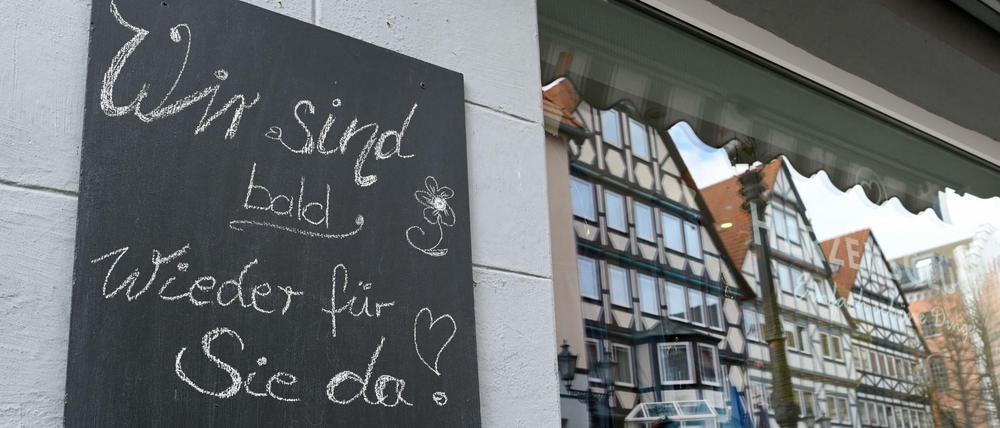 Wir sind
bald
Wieder für
Sie da!